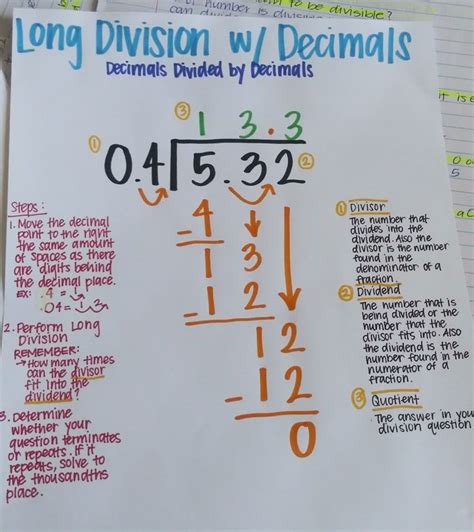 to be divisible?
number is
Long Division w/ Decimals
Decimals Divided by Decimals
③
1 3.3
① 0.4 5.32 ②
- 4
1 3
- 1 2
1 2
- 1 2
0
Steps:
1. Move the decimal
point to the right
the same amount
of spaces as there
are digits behind
the decimal place.
EX: .4 =
.04=
2. Perform Long
Division
REMEMBER:
→How many times
can the divisor
fit into the
dividend?
3. Determine
whether your
question terminates
or repeats. If it
repeats, solve to
the thousandths
place.
① Divisor
The number that
divides into the
dividend. Also the
divisor is the number
found in the
denominator of a
fraction.
② Dividend
The number that is
being divided or the
number that the
divisor fits into. Also
the dividend is the
number found in the
numerator of a
fraction.
③ Quotient
The answer in you
division question